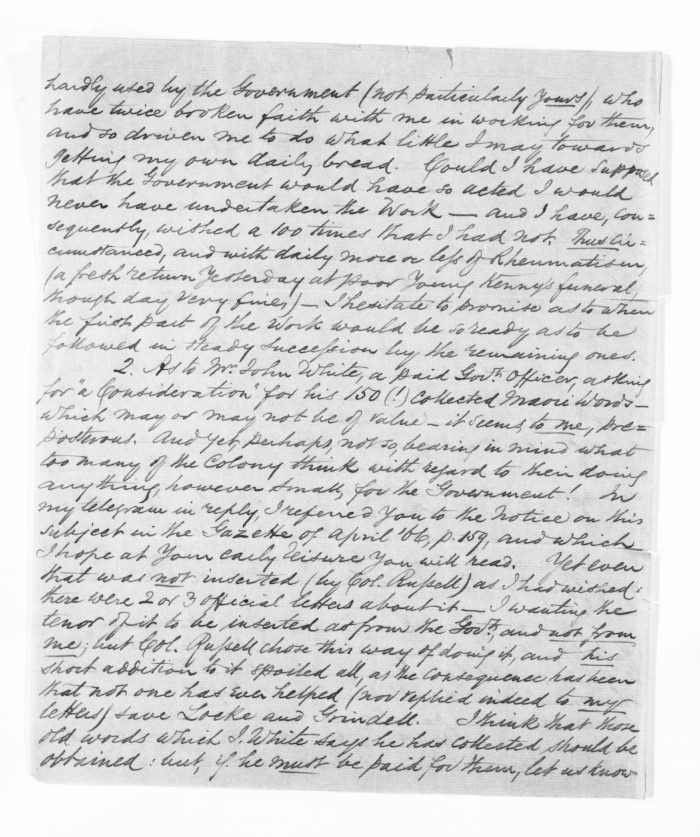 hardly used by the Government (not particularly Yours), who
have twice broken faith with me in working for them,
and so driven me to do what little I may towards
getting my own daily bread. Could I have supposed
that the Government would have so acted I would
never have undertaken the Work — and I have, con=
sequently, wished a 100 times that I had not. Thus cir=
cumstanced, and with daily more or less of Rheumatism,
(a fresh return Yesterday at poor Young Kenny's funeral,
though day very fine,) — I hesitate to promise as to when
the first part of the Work would be so ready as to be
followed in steady succession by the remaining ones.
2. As to Mr. John White, a paid Govt. Officer, asking
for "a Consideration" for his 150 (!) collected Maori Words —
which may or may not be of value — it seems, to me, pre=
posterous. And yet, perhaps, not so, bearing in mind what
too many of the Colony think with regard to their doing
anything, however small, for the Government! In
my telegram in reply, I referred You to the Notice on this
subject in the Gazette of April '66, p. 159, and which
I hope at Your early leisure You will read. Yet even
that was not inserted (by Col. Russell) as I had wished:
there were 2 or 3 official letters about it — I wanting the
tenor of it to be inserted as from the Govt., and not from
me; but Col. Russell chose this way of doing it, and his
short addition to it spoiled all, as the consequence has been
that not one has ever helped (nor replied indeed to my
letters) save Locke and Grindell. I think that those
old words which J. White says he has collected, should be
obtained: but, if he must be paid for them, let us know